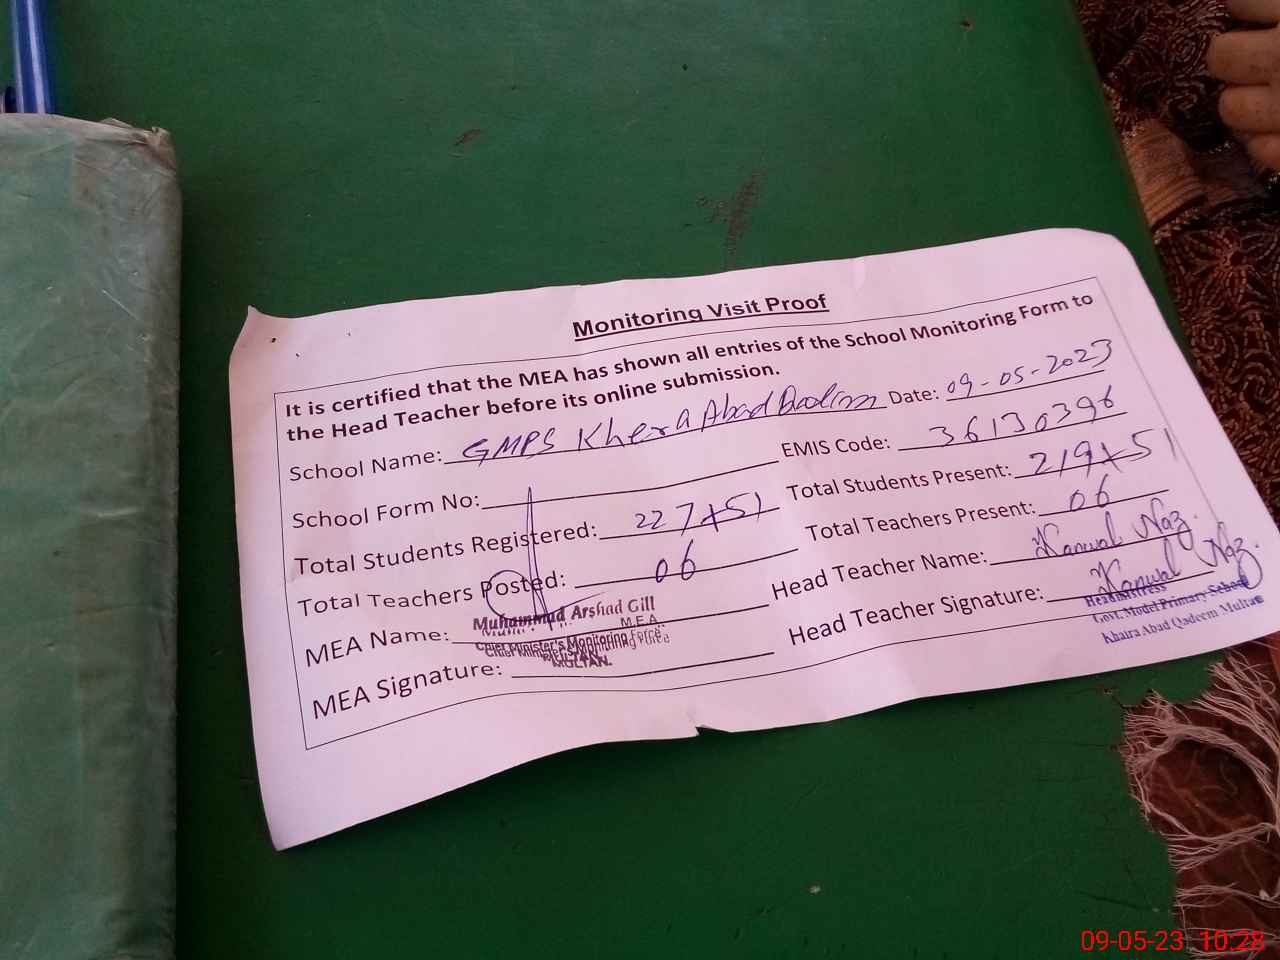 Monitoring Visit Proof
It is certified that the MEA has shown all entries of the School Monitoring Form to
the Head Teacher before its online submission.
School Name: GMPS Khera Abad Date: 09-05-2023
School Form No: EMIS Code: 36130396
Total Students Registered: 227+51 Total Students Present: 219+51
Total Teachers Posted: 06 Total Teachers Present: 06
MEA Name: Head Teacher Name: Kanwal Naz.
MEA Signature: Head Teacher Signature: Kanwal Naz.
Muhammad Arshad Gill
M.E.A.
Chief Minister's Monitoring Force
MULTAN.
Headmistress
Govt. Model Primary School
Khaira Abad Qadeem Multan
09-05-23 10:28